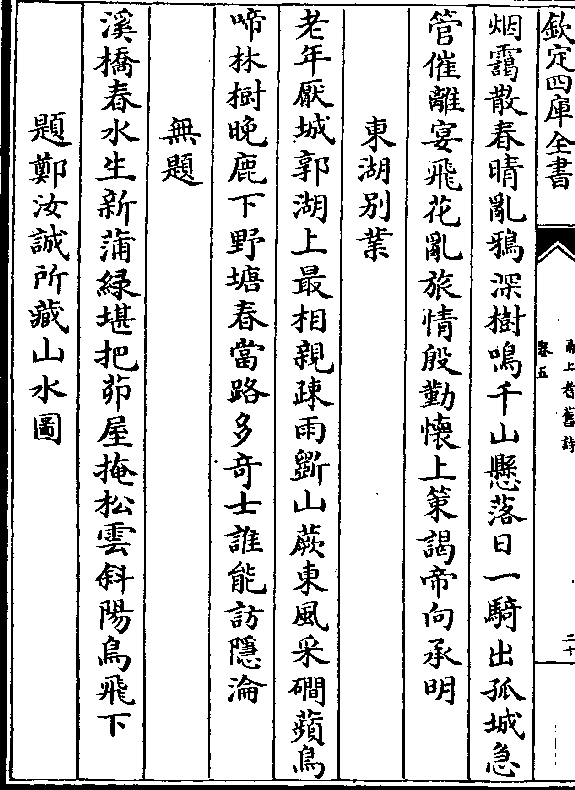 欽定四庫全書
甬上耆舊詩
卷五
二十
烟靄散春晴亂鴉深樹鳴千山懸落日一騎出孤城急
管催離宴飛花亂旅情殷勤懷上策謁帝向承明
東湖别業
老年厭城郭湖上最相親疎雨斷山蕨東風采磵蘋鳥
啼林樹晚鹿下野塘春當路多奇士誰能訪隱淪
無題
溪橋春水生新蒲緑堪把茆屋掩松雲斜陽鳥飛下
題鄭汝誠所藏山水圖